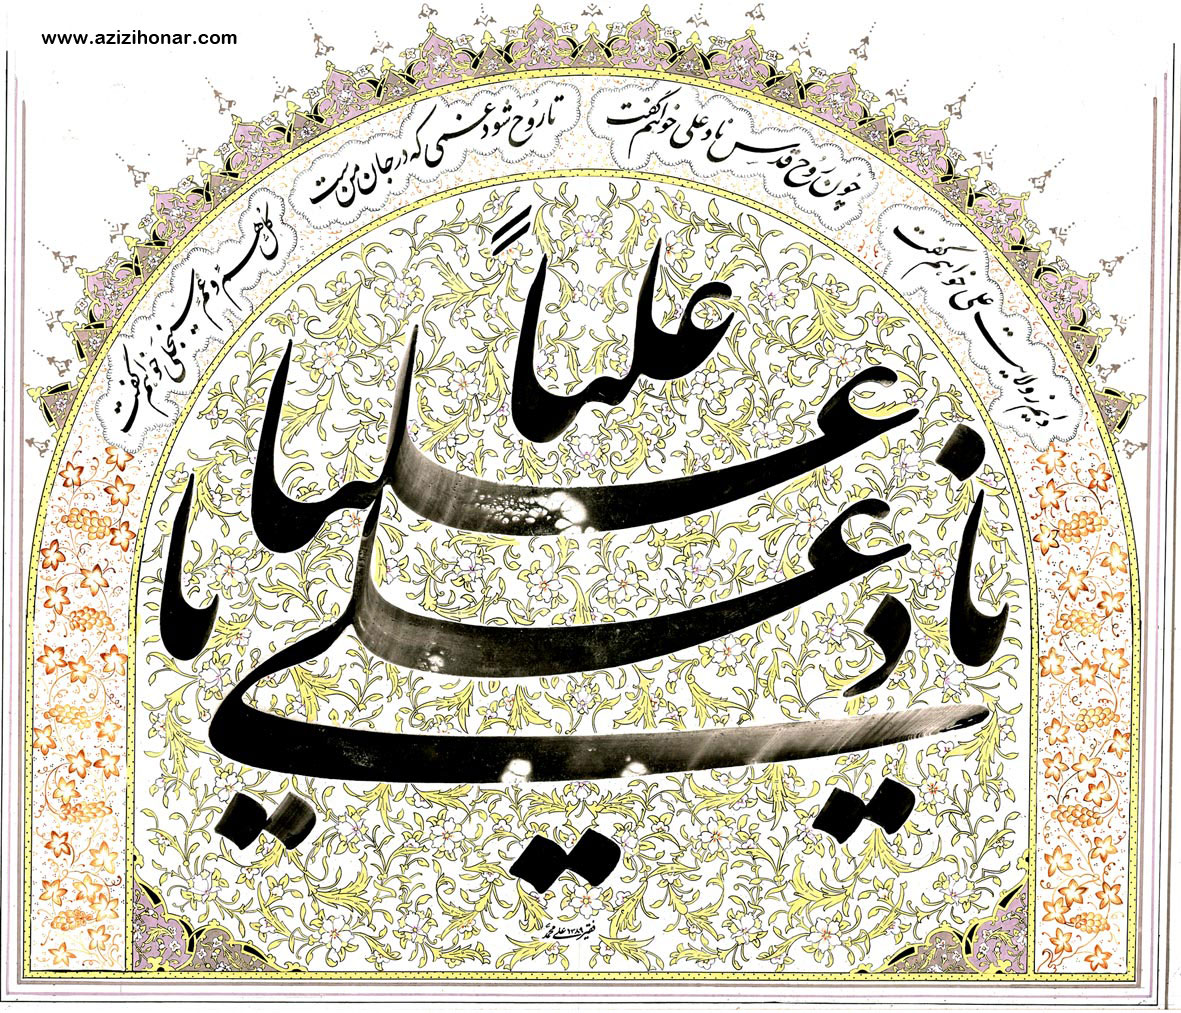 www.azizihonar.com
دایم ز ولایت علی خواهم گفت
چون روح قدس ناد علی خواهم گفت
تا روح شود غمی که در جان من ست
کل هم و غم سینجلی خواهم گفت
علیاً
علیا
ناد علی یا
فقیر ۱۳۸۹